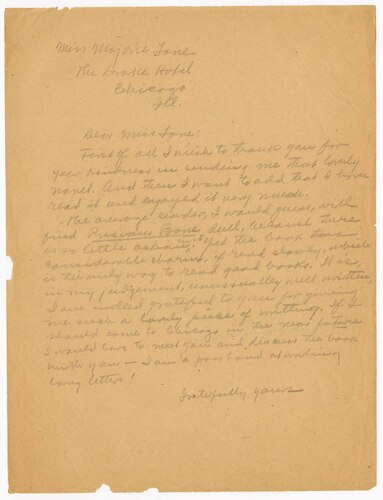 Miss Marjorie Lane
The Drake Hotel
Chicago
Ill.
Dear Miss Lane:
First of all I wish to thank you for
your kindness in sending me that lovely
novel. And then I want to add that I have
read it and enjoyed it very much.
The average reader, I would guess, will
find Bane, dull, because there
is so little action; yet the book has
considerable charm, if read slowly, which
is the only way to read good books. It is,
in my judgement, unusually well written.
I am indeed grateful to you for giving
me such a lovely piece of writing. If I
should come to Chicago in the near future
I would love to meet you and discuss the book
with you — I am a poor hand at making
long letters!
Gratefully yours